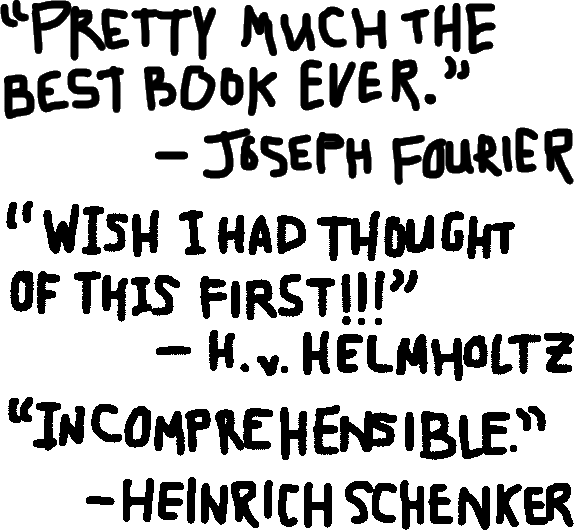 “PRETTY MUCH THE
BEST BOOK EVER.”
– JOSEPH FOURIER
“WISH I HAD THOUGHT
OF THIS FIRST!!!”
– H. v. HELMHOLTZ
“INCOMPREHENSIBLE.”
–HEINRICH SCHENKER